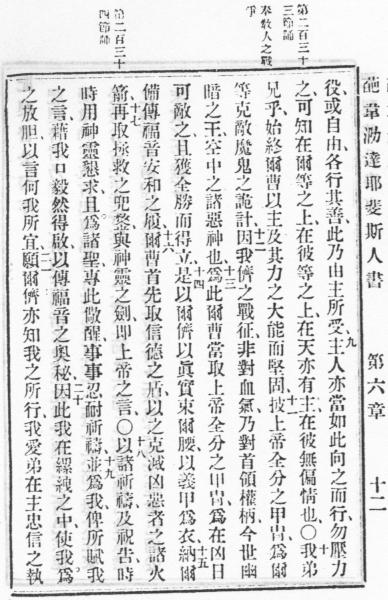 葩韋泐達耶斐斯人書 第六章 十二
第二百三十三節誦
奉教人之戰爭
第二百三十四節誦
役或自由各行其善此乃由主所受、九主人亦當如此向之而行、勿壓力
之、可知在爾等之上在彼等之上在天亦有主、在彼無偏情也○十我弟
兄乎、始終爾曹以主及其力之大能而堅固、十一披上帝全分之甲冑、為爾
等克敵魔鬼之詭計、十二因我儕之戰征、非對血氣、乃對首領權柄今世幽
暗之王、空中之諸惡神也、十三為此爾曹當取上帝全分之甲冑、為在凶日
可敵之、且獲全勝而得立、十四是以爾儕以眞實束爾腰、以義甲為衣、十五納爾
備傳福音安和之履、十六爾曹首先取信德之盾、以之克滅凶惡者之諸火
箭、十七再取拯救之兜鍪、與神靈之劍、即上帝之言○十八以諸祈禱及祝告、時
時用神靈懇求、且為諸聖專此儆醒、事事忍耐祈禱、十九並為我、俾所賦我
之言、藉我口毅然得啟、以傳福音之奧秘、二十因此我在縲絏之中、使我為
之放胆以言、何我所宜、二一願爾儕亦知我之所行、我愛弟在主忠信之執